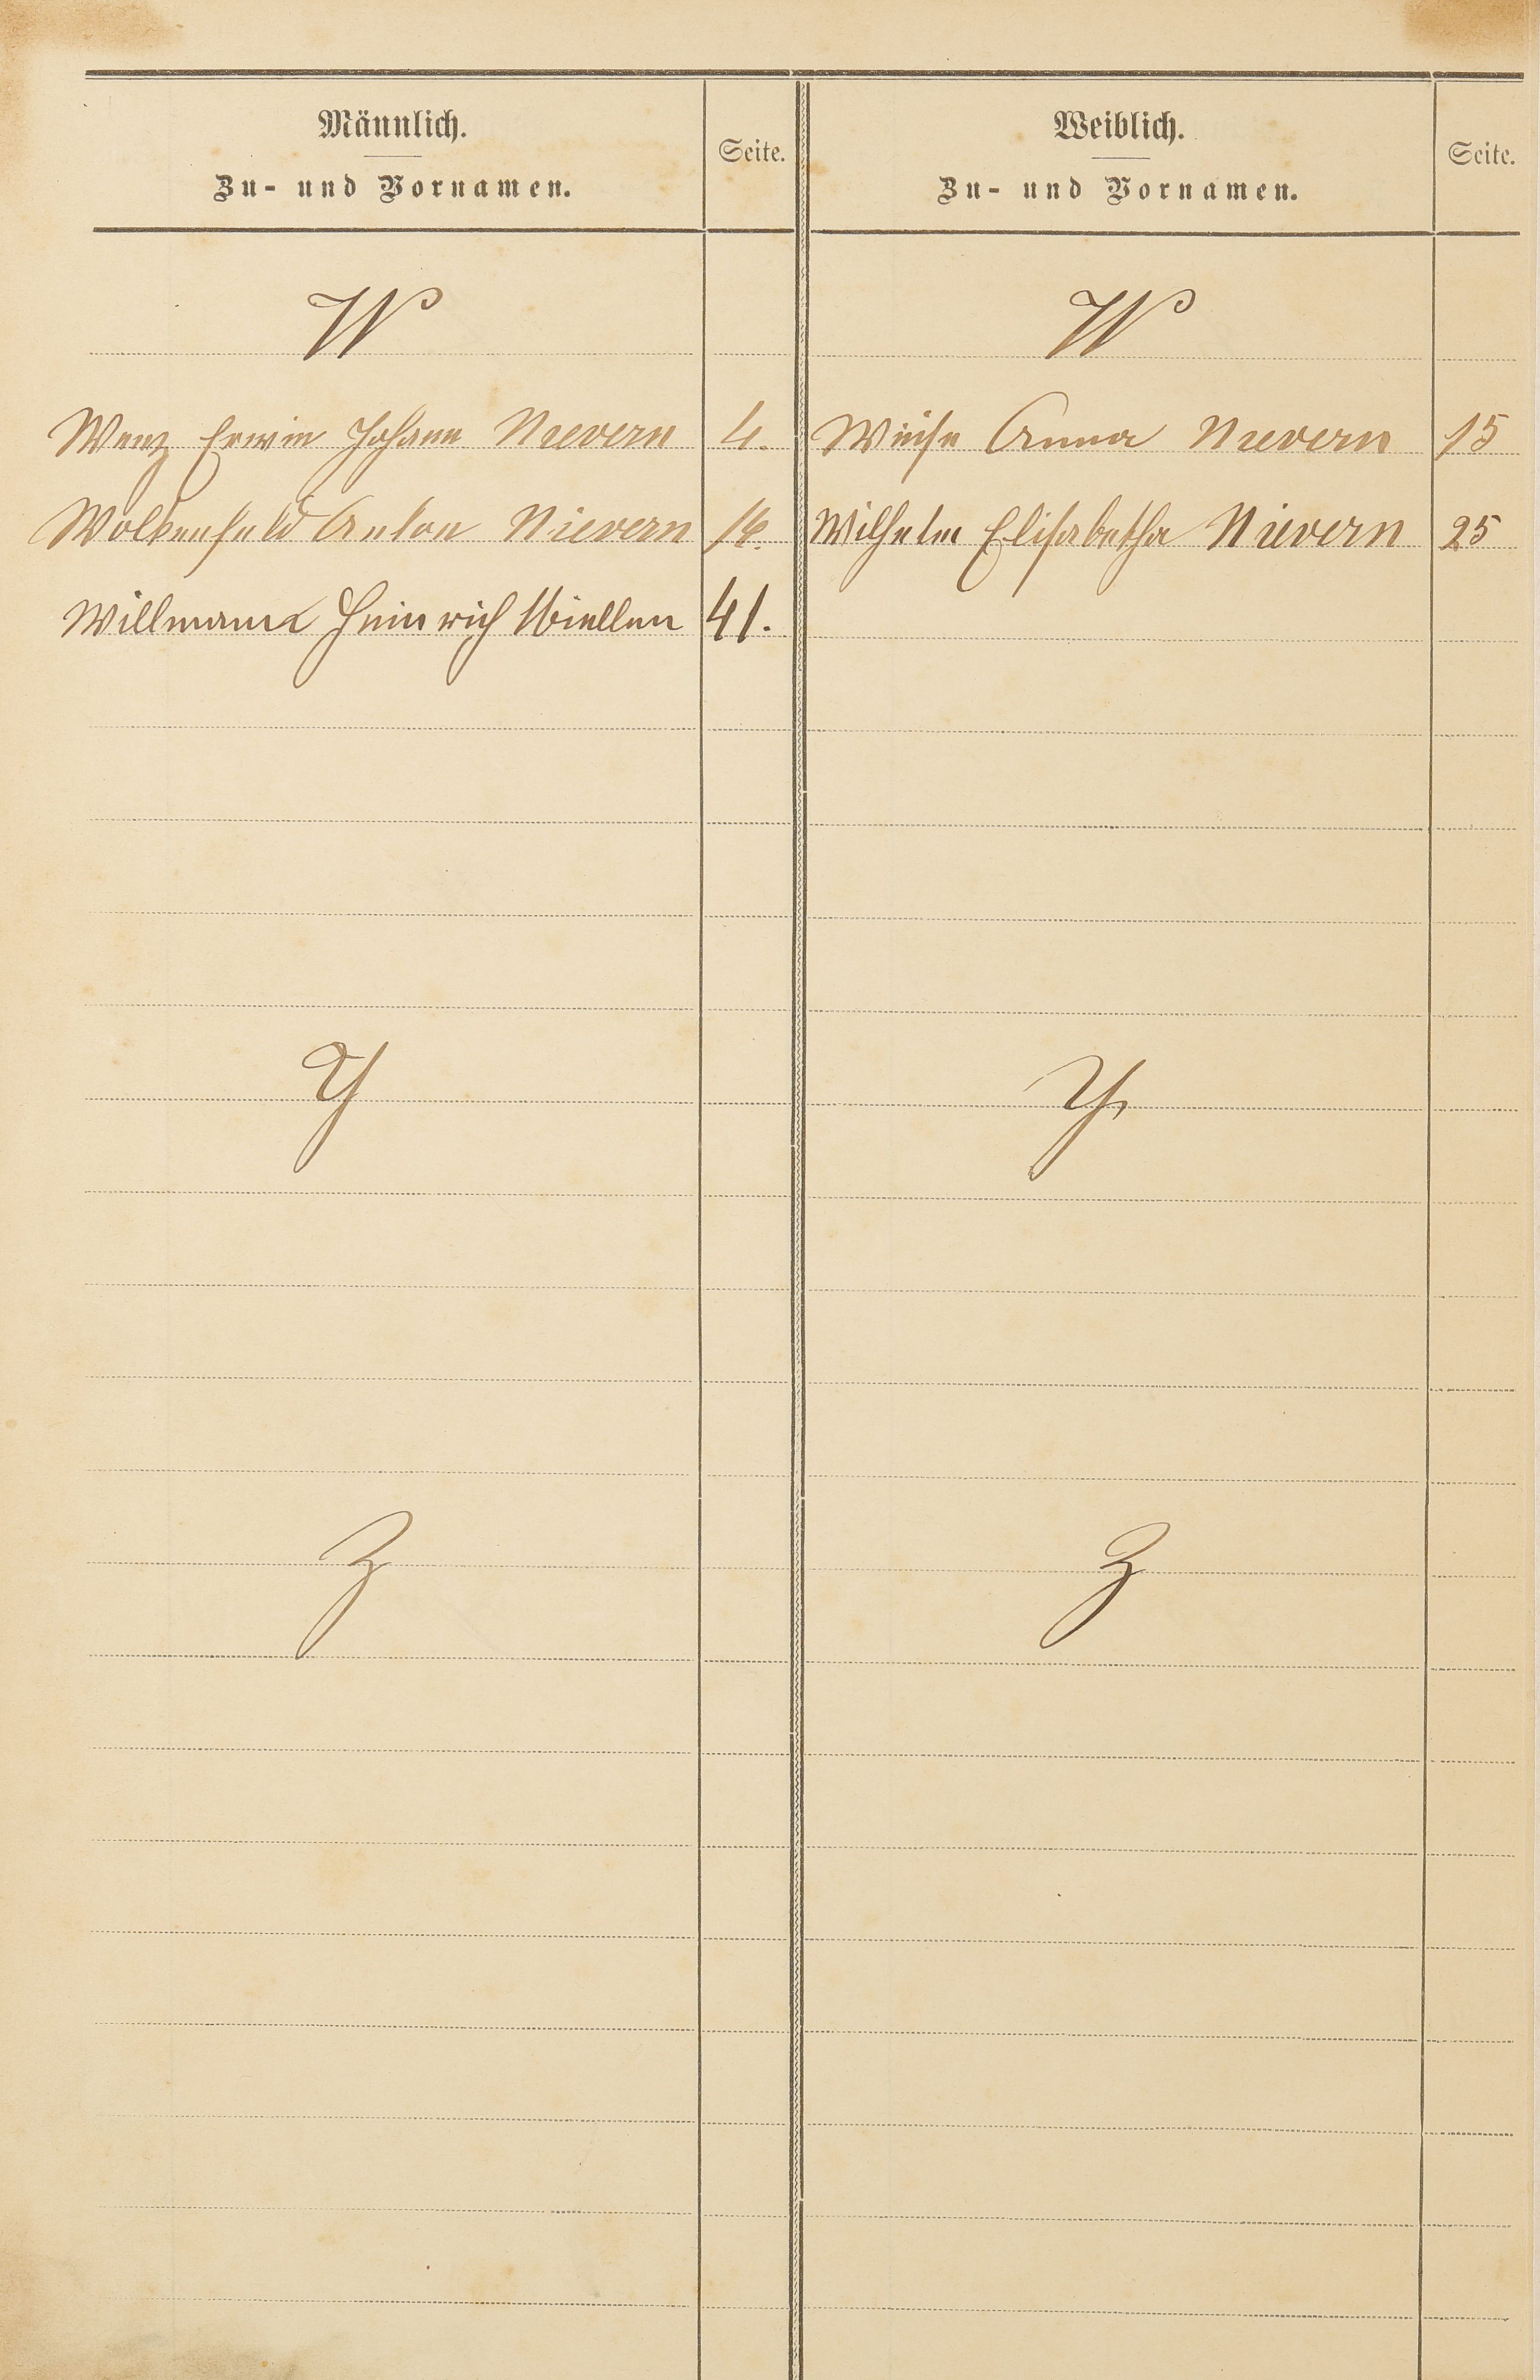 Männlich.
Zu- und Vornamen.
Seite.
Weiblich.
Zu- und Vornamen.
Seite.
W
W
Wenz Erwin Johann Nievern 4.
Weise Anna Nievern 15
Wolkenfeld Anton Nievern
Wilhelm Elisabetha Nievern 25
Willmann Heinrich Miellen 41.
Y
Y
Z
Z